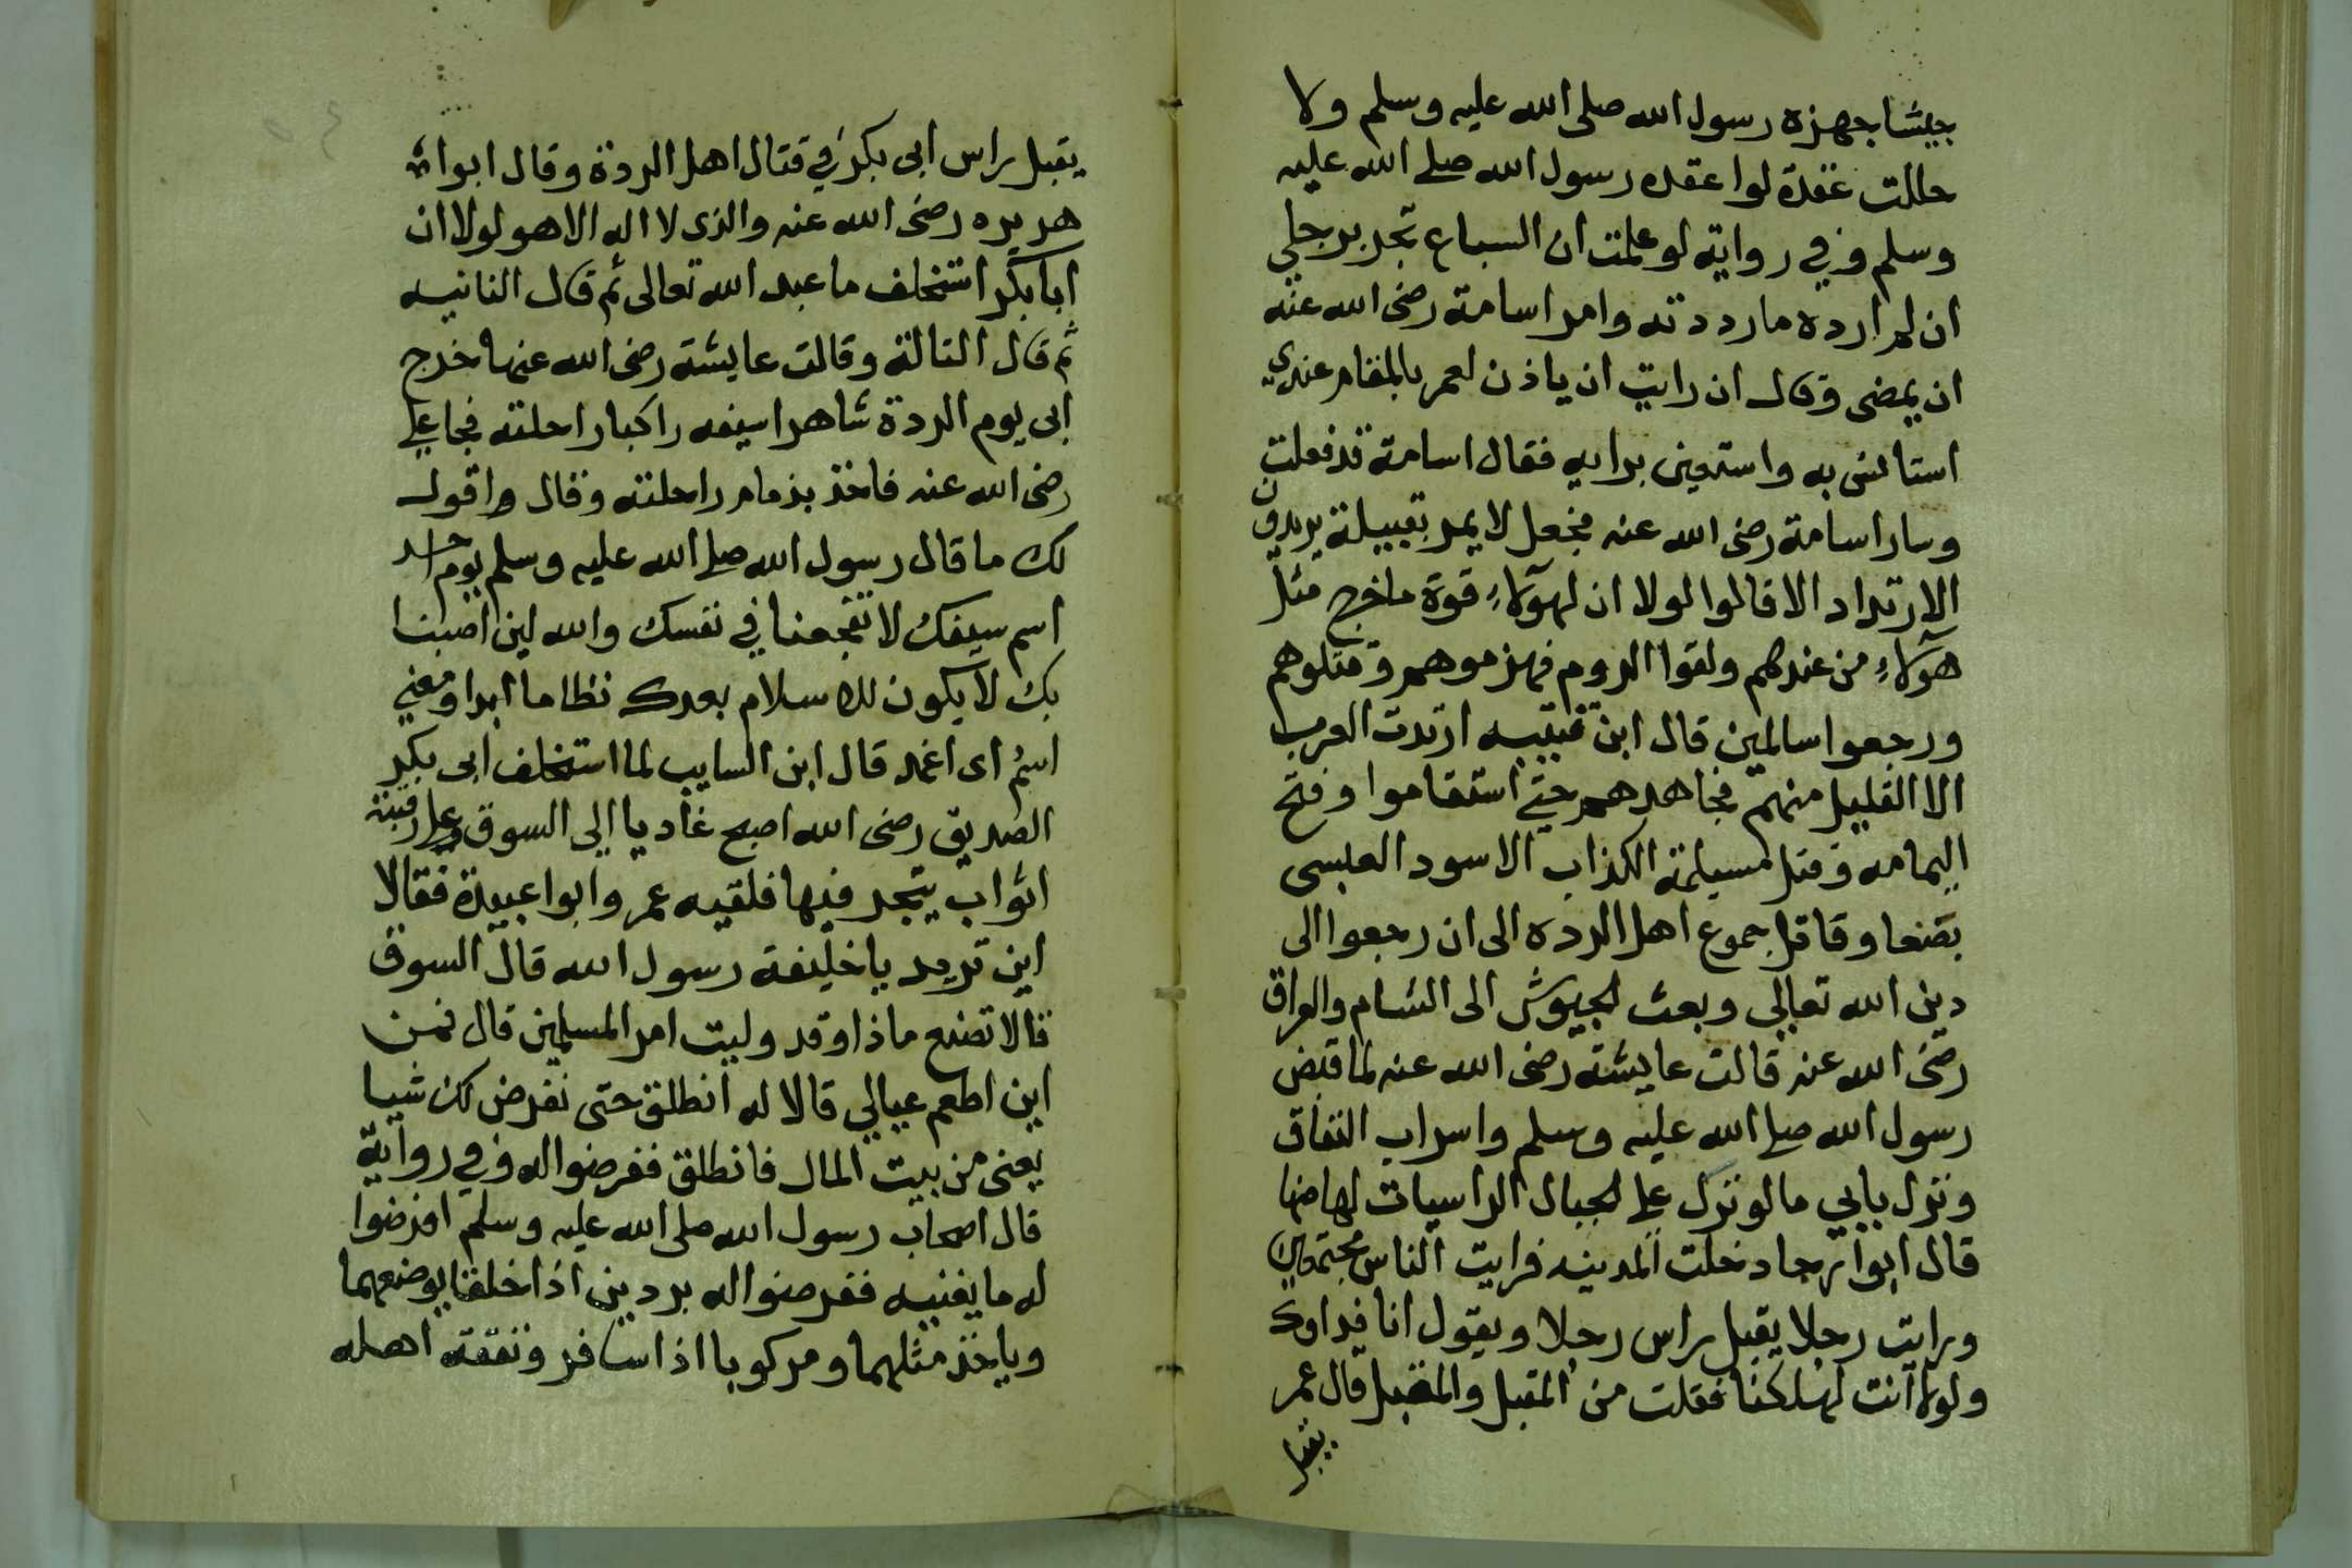 جيشا جهزه رسول الله صلى الله عليه وسلم ولا
حللت عقدة لوا عقده رسول الله صلى الله عليه
وسلم وفي رواية لو علمت ان السباع تجر برجلي
ان لم ارده ما رددته وامر اسامة رضى الله عنه
ان يمضى وقال ان رايت ان ياذن لعمر بالمقام عندي
استانس به واستعين برايه فقال اسامة قد فعلت
وسار اسامة رضى الله عنه فجعل لا يمر بقبيلة يريدون
الارتداد الا قالوا لولا ان لهولاء قوة ما خرج مثل
هولاء من عندهم ولقوا الروم فهزموهم وقتلوهم
ورجعوا سالمين قال ابن قتيبه ارتدت العرب
الا القليل منهم فجاهدهم حتى استقاموا وفتح
اليمامه وقتل مسيلمة الكذاب الاسود العبسى
بصنعا وقاتل جموع اهل الرده الى ان رجعوا الى
دين الله تعالى وبعث الجيوش الى الشام والعراق
رضى الله عنه قالت عايشة رضى الله عنه لما قبض
رسول الله صلى الله عليه وسلم واسراب النفاق
ونزل بابي ما لو نزل على الجبال الراسيات لهاضها
قال ابوا رجا دخلت المدينه فرايت الناس مجتمعين
ورايت رجلا يقبل راس رجلا ويقول انا فداوك
ولولا انت لهلكنا فقلت من المقبل والمقبل قال عمر
يقبل
يقبل راس ابى بكر في قتال اهل الردة وقال ابوا
هريره رضى الله عنه والذى لا اله الا هو لولا ان
ابا بكر استخلف ما عبد الله تعالى ثم قال الثانيه
ثم قال الثالثة وقالت عايشة رضى الله عنها خرج
ابى يوم الردة شاهرا سيفه راكبا راحلته فجا على
رضى الله عنه فاخذ بزمام راحلته وقال واقول
لك ما قال رسول الله صلى الله عليه وسلم يوم احد
اسم سيفك لا تفجعنا في نفسك والله لين اصبنا
بك لا يكون للاسلام بعدك نظاما ابدا ومعني
اسم اى اغمد قال ابن السايب لما استخلف ابى بكر
الصديق رضى الله اصبح غاديا الى السوق وعلى رقبته
اثواب يتجر فيها فلقيه عمر وابوا عبيدة فقالا
اين تريد يا خليفة رسول الله قال السوق
قالا تصنع ماذا وقد وليت امر المسلمين قال فمن
اين اطعم عيالي قالا له انطلق حتى نفرض لك شيا
يعنى من بيت المال فانطلق ففرضوا له وفي رواية
قال اصحاب رسول الله صلى الله عليه وسلم افرضوا
له ما يغنيه ففرضوا له بردين اذا خلقا يوضعهما
وياخذ مثلهما ومركوبا اذا سافر ونفقة اهله